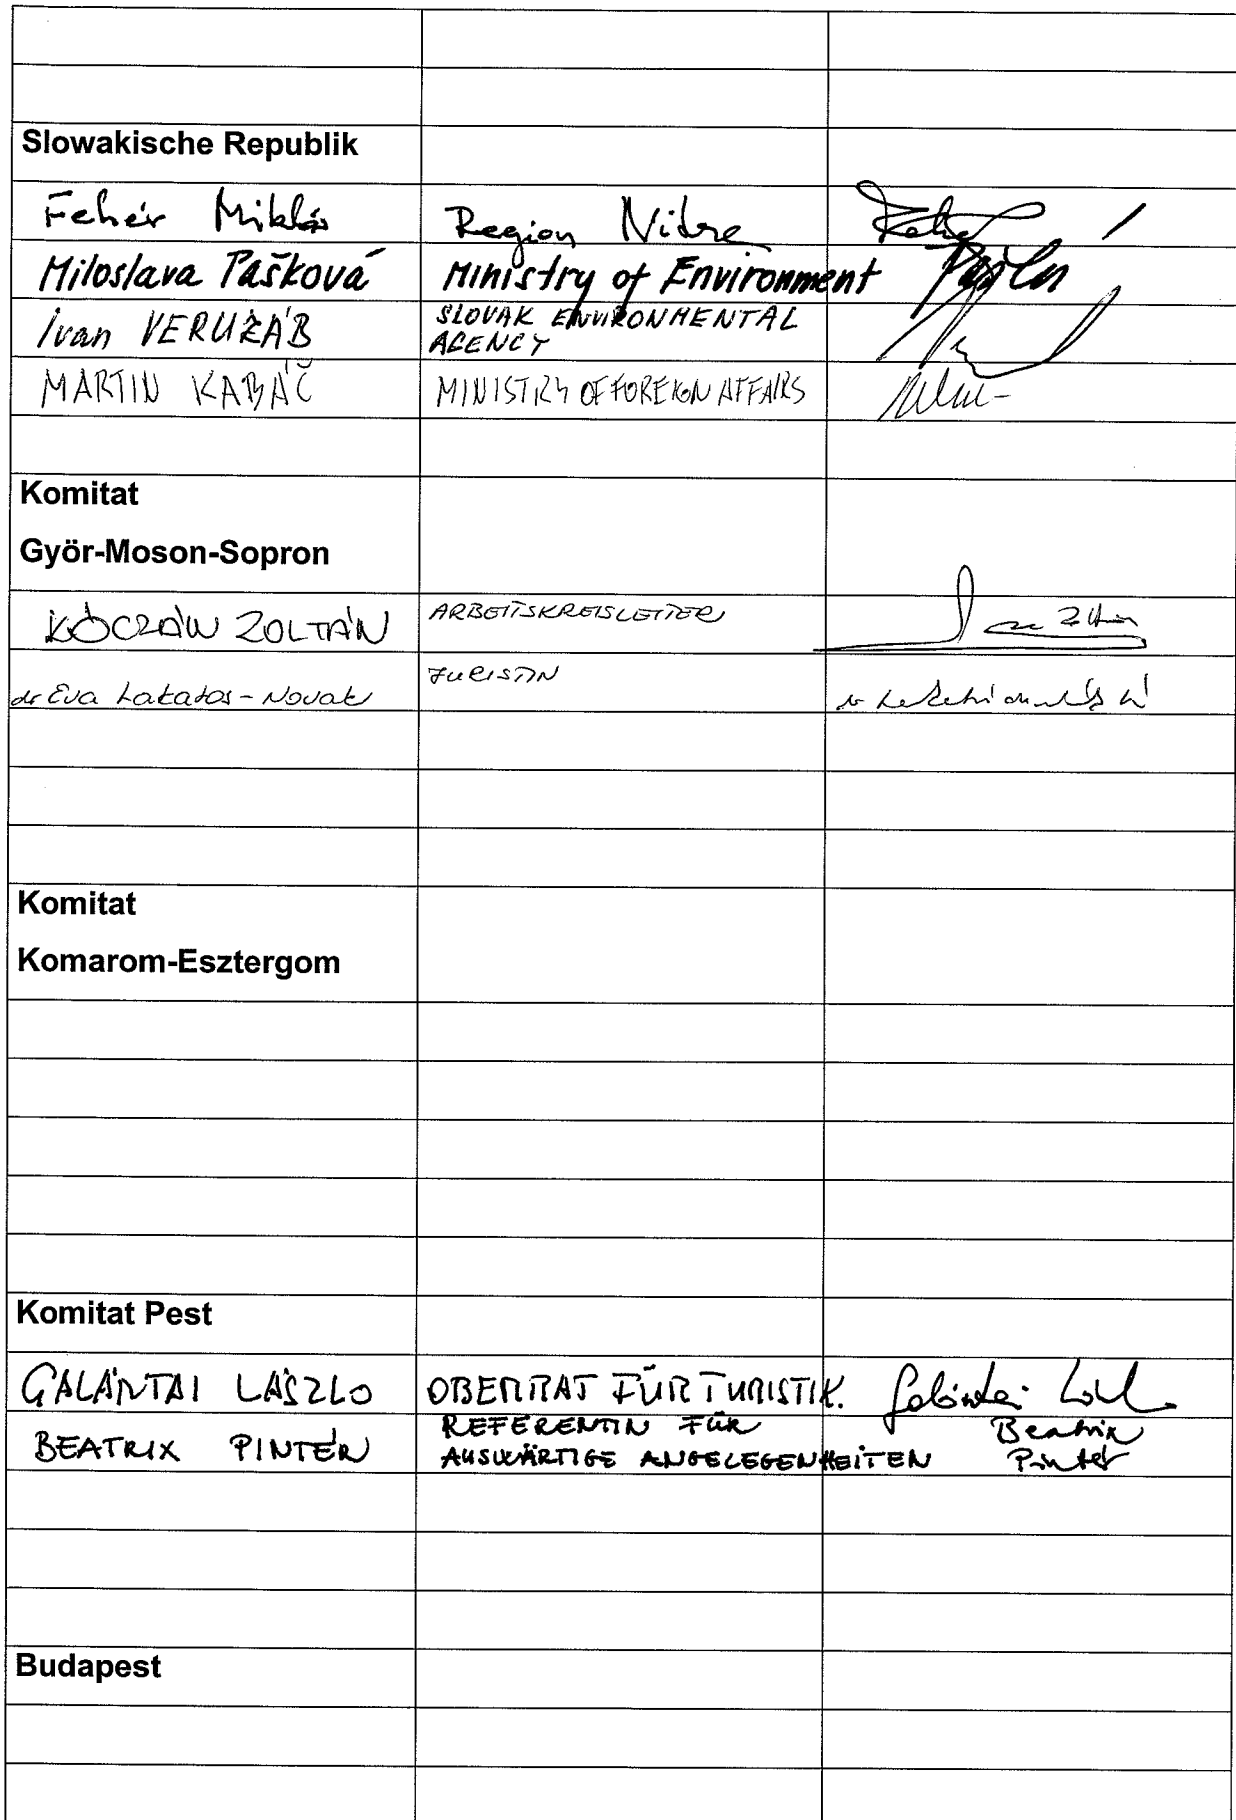 Slowakische Republik
Fehér Miklós Region Nitra
Miloslava Tašková Ministry of Environment
Ivan VERUŽÁB SLOVAK ENVIRONMENTAL
AGENCY
MARTIN KABÁČ MINISTRY OF FOREIGN AFFAIRS
Komitat
Györ-Moson-Sopron
KÓCZÁN ZOLTÁN ARBEITSKREISLEITER
dr Eva Lakatos-Novak JURISTIN
Komitat
Komarom-Esztergom
Komitat Pest
GALÁNTAI LÁSZLO OBERRAT FÜR TURISTIK.
BEATRIX PINTÉR REFERENTIN FÜR Beatrix
AUSWÄRTIGE ANGELEGENHEITEN Pintér
Budapest